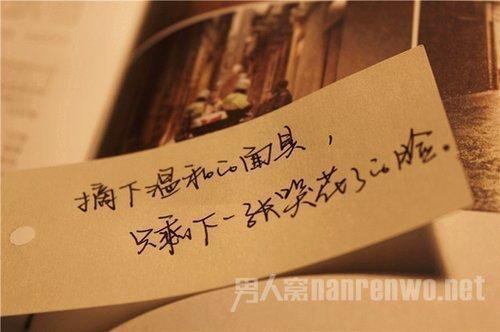 摘下温和的面具，
只剩下一张哭花了的脸。
男人窝nanrenwo.net